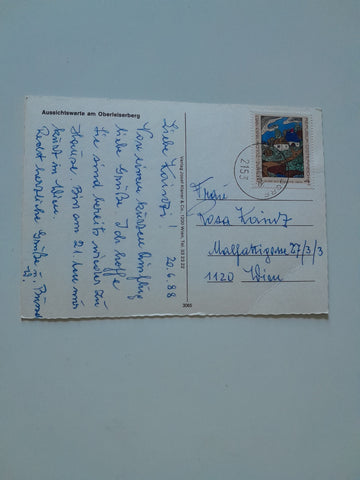 Aussichtswarte am Oberleiserberg
20.6.88
Liebe Kainzi!
Von einem kurzen Ausflug
liebe Grüße. Ich hoffe
Sie sind bereits wieder zu
Hause. Bin am 21. kurz nur
kurz in Wien.
Recht herzliche Grüße u. Bussi
3065
2153
Frau
Rosa Kainz
Malfattigasse 27/3/3
1120 Wien